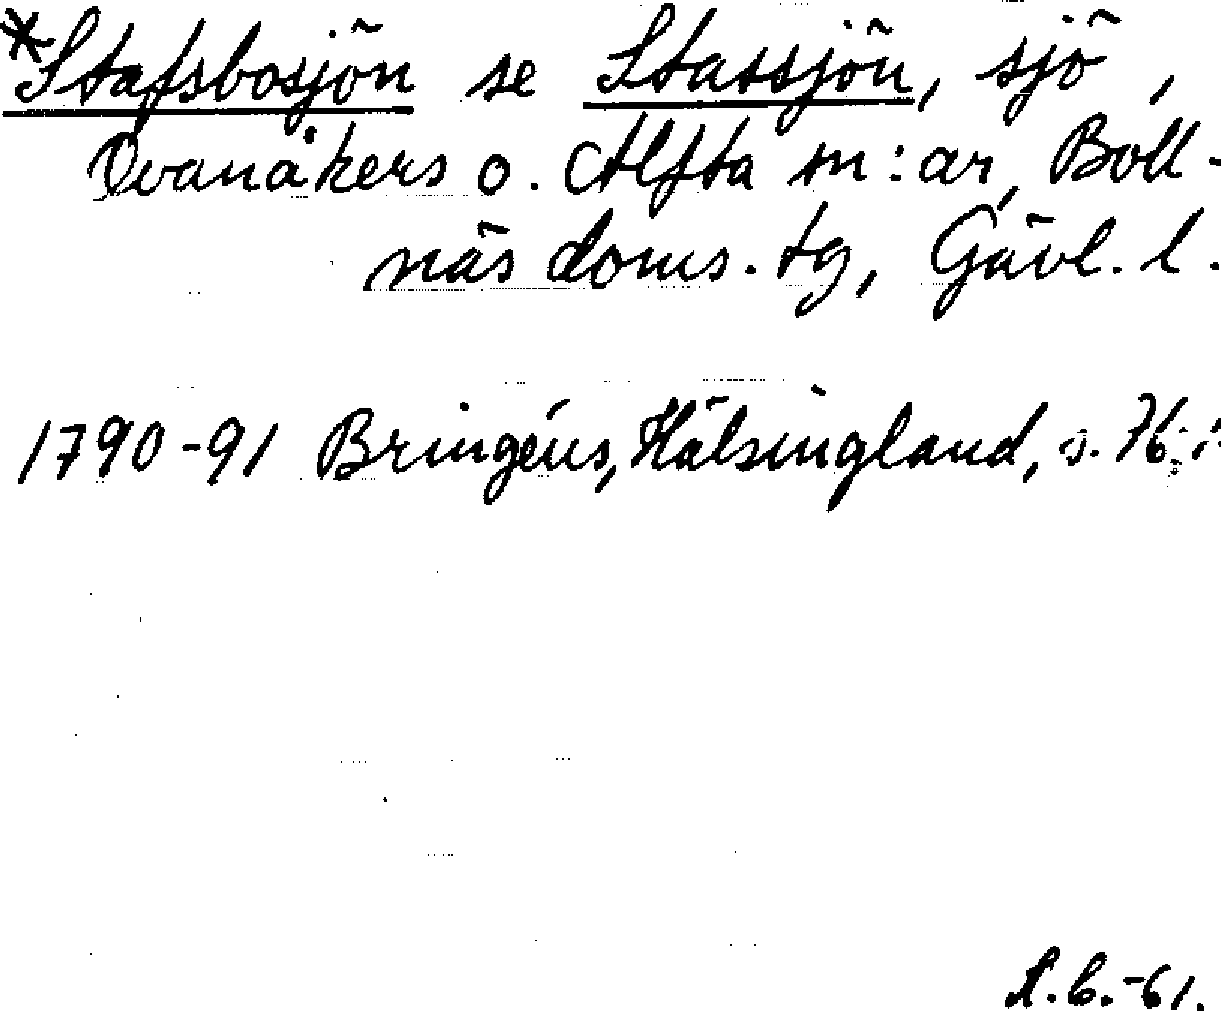 *Stafsbosjön se Stassjön, sjö,
Ovanåkers o. Alfta sn:ar, Boll-
näs doms. tg, Gävl. l.
1790-91 Bringéus, Hälsingland, s. 76